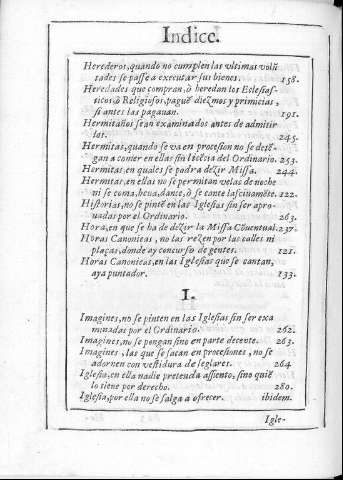 Indice.
Herederos, quando no cumplen las vltimas volũ
tades se passe a executar sus bienes. 158.
Heredades que compran, ò heredan los Eclesias-
ticos, ò Religiosos, paguẽ diezmos y primicias,
si antes las pagauan. 191.
Hermitaños sean examinados antes de admitir
las. 245.
Hermitas, quando se va en procesion no se detẽ-
gan a comer en ellas sin licẽcia del Ordinario. 253.
Hermitas, en quales se podra dezir Missa. 244.
Hermitas, en ellas no se permitan velas de noche
ni se coma, beua, dance, ò se cante lasciuamẽte. 122.
Historias, no se pintẽ en las Iglesias sin ser apro-
uadas por el Ordinario. 263.
Hora, en que se ha de dezir la Missa Cõuentual. 237.
Horas Canonicas, no las rezen por las calles ni
plaças, donde ay concurso de gentes. 121.
Horas Canonicas, en las Iglesias que se cantan,
aya puntador. 133.
I.
Imagines, no se pinten en las Iglesias sin ser exa
minadas por el Ordinario. 262.
Imagines, no se pongan sino en parte decente. 263.
Imagines, las que se sacan en procesiones, no se
adornen con vestidura de seglares. 264
Iglesia, en ella nadie pretenda assiento, sino quiẽ
lo tiene por derecho. 280.
Iglesia, por ella no se salga a ofrecer. ibidem.
Igle-